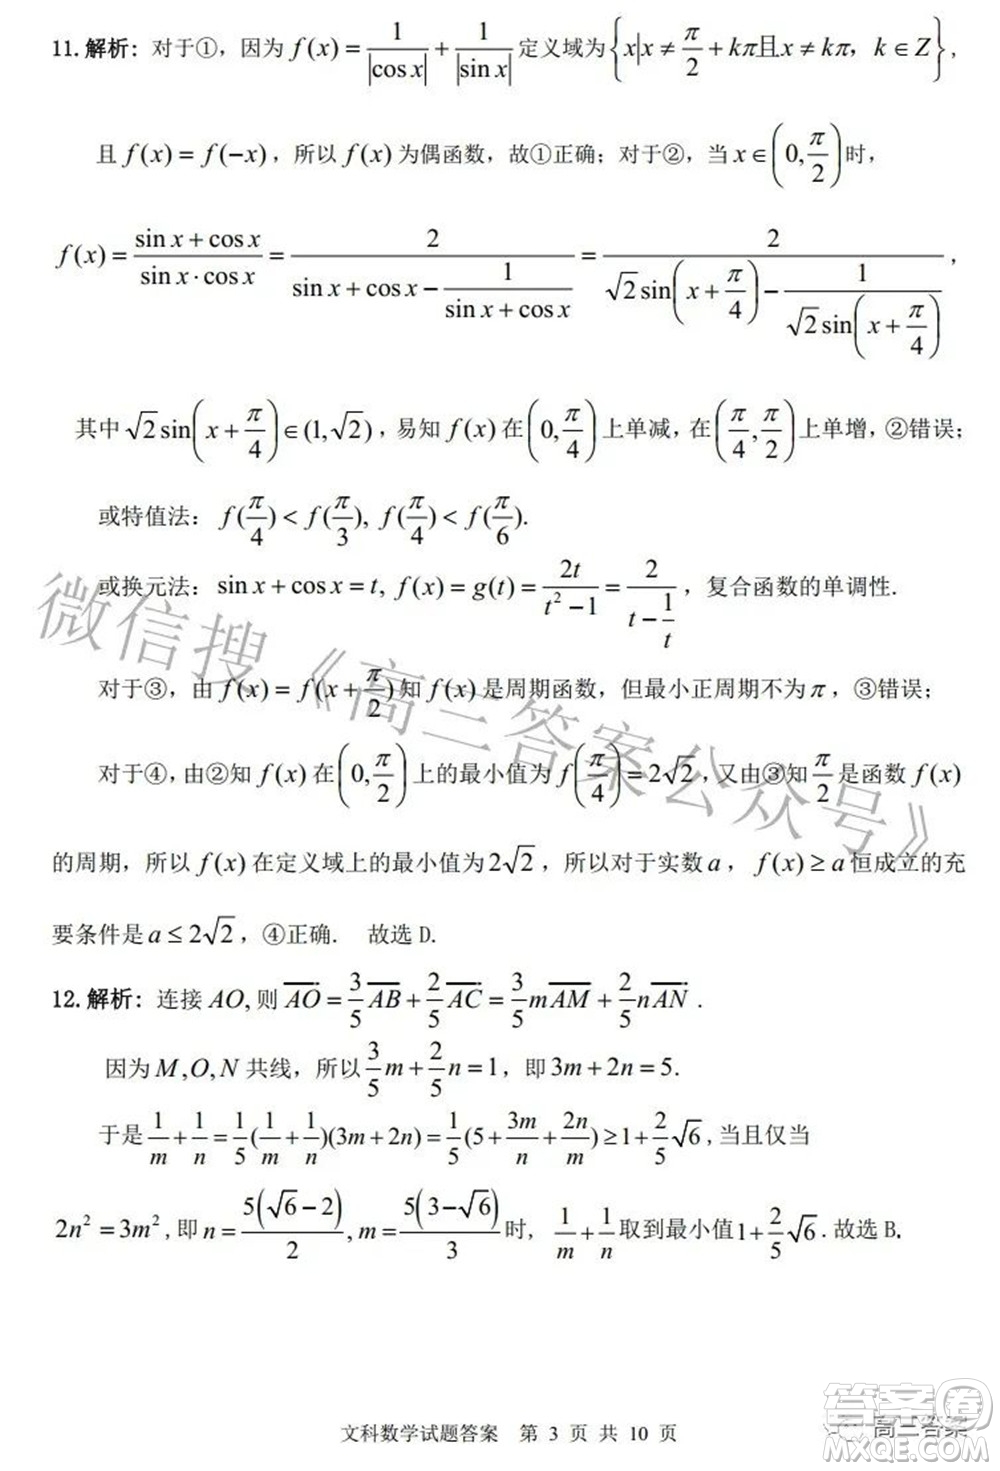 11. 解析：对于①，因为 f(x) = 1/|cos x| + 1/|sin x| 定义域为 {x|x ≠ π/2 + kπ且x ≠ kπ，k ∈ Z}，
且 f(x) = f(−x)，所以 f(x) 为偶函数，故①正确；对于②，当 x ∈ (0, π/2) 时，
f(x) = (sin x + cos x)/(sin x · cos x) = 2/(sin x + cos x − 1/(sin x + cos x)) = 2/(√2 sin(x + π/4) − 1/(√2 sin(x + π/4)))，
其中 √2 sin(x + π/4) ∈ (1, √2)，易知 f(x) 在 (0, π/4) 上单减，在 (π/4, π/2) 上单增，②错误；
或特值法：f(π/4) < f(π/3), f(π/4) < f(π/6).
或换元法：sin x + cos x = t, f(x) = g(t) = 2t/(t² − 1) = 2/(t − 1/t)，复合函数的单调性.
对于③，由 f(x) = f(x + π/2) 知 f(x) 是周期函数，但最小正周期不为 π，③错误；
对于④，由②知 f(x) 在 (0, π/2) 上的最小值为 f(π/4) = 2√2，又由③知 π/2 是函数 f(x)
的周期，所以 f(x) 在定义域上的最小值为 2√2，所以对于实数 a，f(x) ≥ a 恒成立的充
要条件是 a ≤ 2√2，④正确. 故选 D.
12. 解析：连接 AO, 则 AO = 3/5 AB + 2/5 AC = 3/5 mAM + 2/5 nAN .
因为 M, O, N 共线，所以 3/5 m + 2/5 n = 1，即 3m + 2n = 5.
于是 1/m + 1/n = 1/5 (1/m + 1/n)(3m + 2n) = 1/5 (5 + 3m/n + 2n/m) ≥ 1 + 2/5 √6 , 当且仅当
2n² = 3m² , 即 n = 5(√6 − 2)/2, m = 5(3 − √6)/3 时， 1/m + 1/n 取到最小值 1 + 2/5 √6 . 故选 B.
微信搜《高三答案公众号》
答案圈
高三答案
MXQE.COM
文科数学试题答案 第 3 页 共 10 页